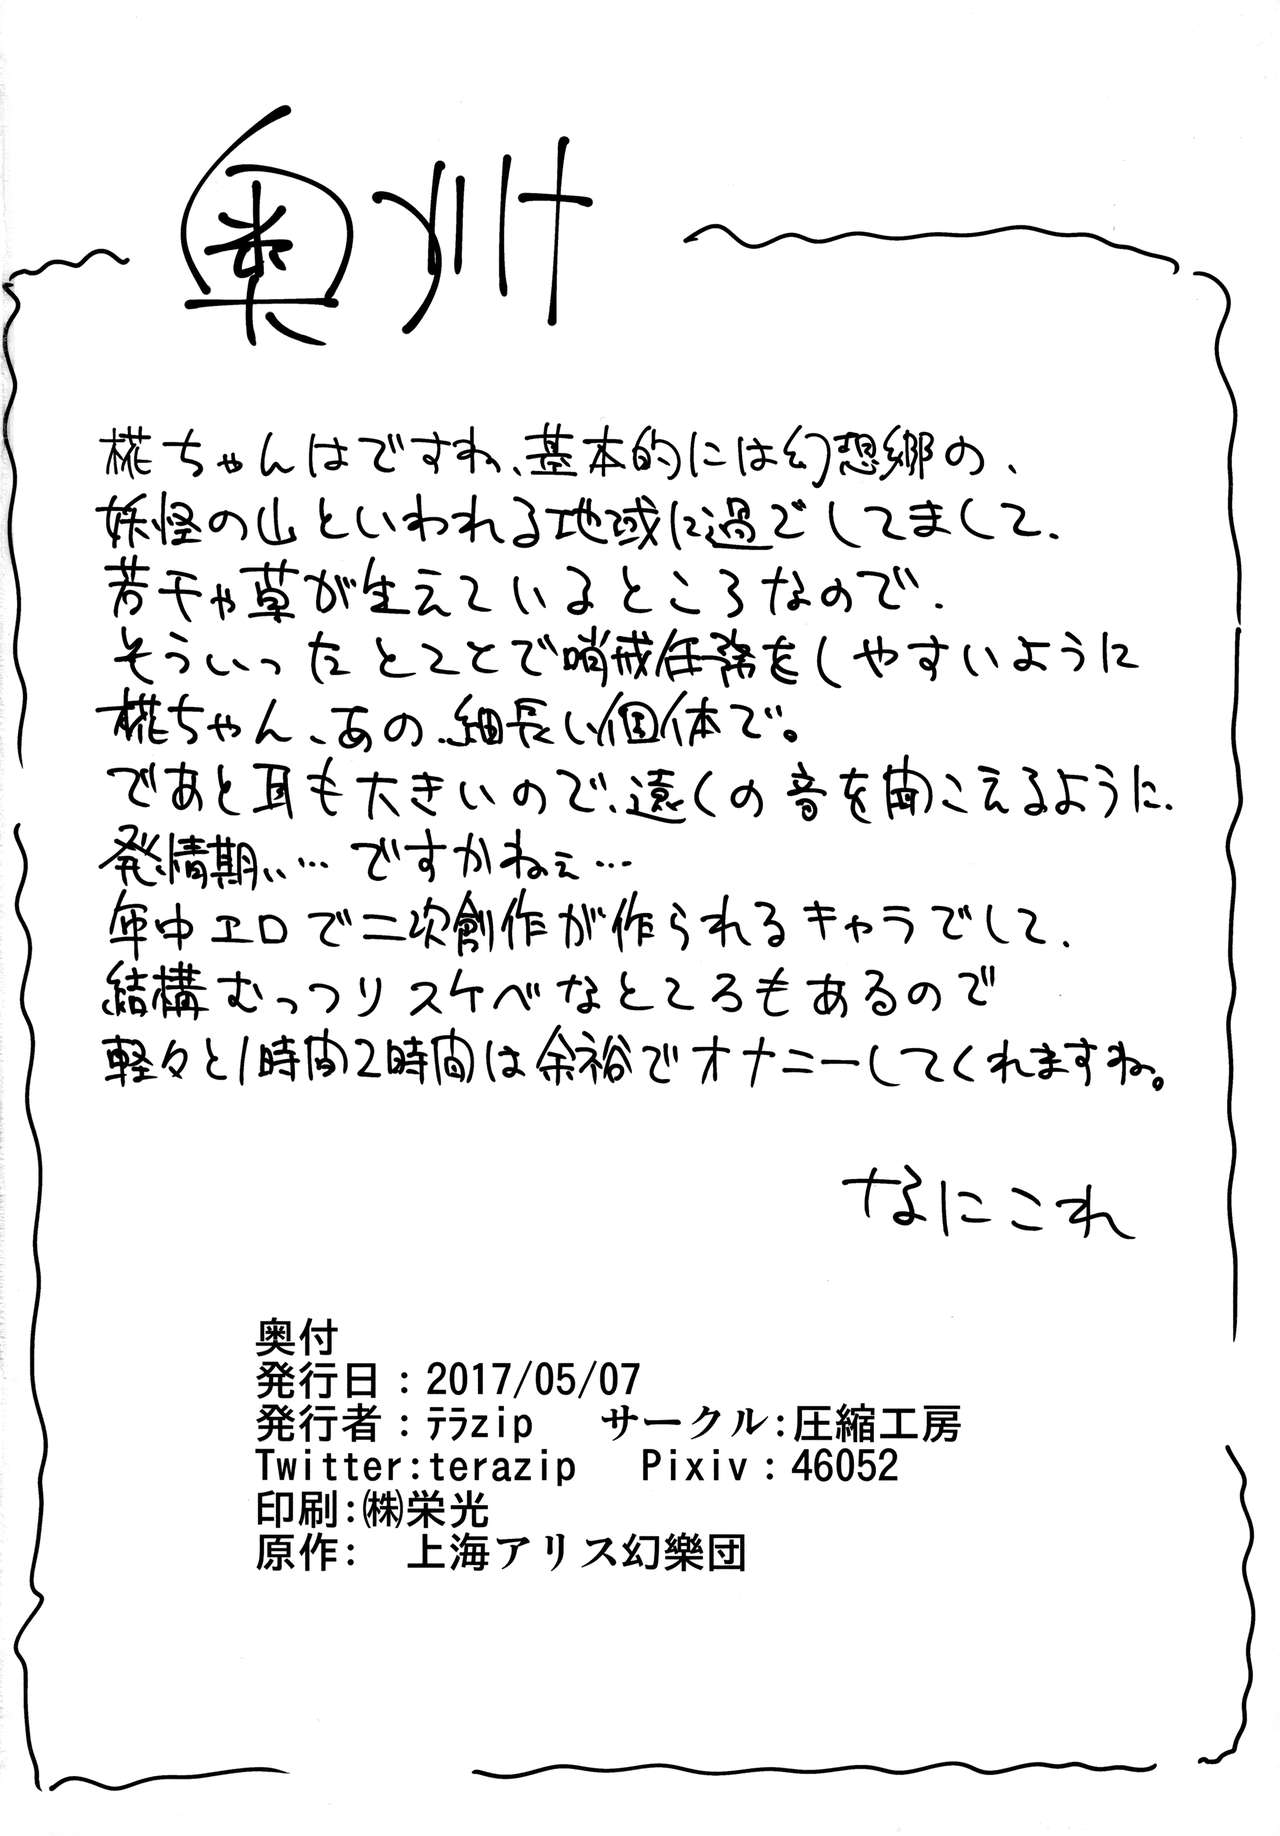 奥付
椛ちゃんはですね、基本的には幻想郷の、
妖怪の山といわれる地域に過ごしてまして、
若干や草が生えているところなので、
そういったとことで哨戒任務をしやすいように
椛ちゃん、あの、細長い個体で。
であと耳も大きいので、遠くの音を聞こえるように、
発情期ぃ…ですかねぇ…
年中エロで二次創作が作られるキャラでして、
結構むっつりスケベなところもあるので
軽々と1時間2時間は余裕でオナニーしてくれますね。
なにこれ
奥付
発行日：2017/05/07
発行者：ﾃﾗzip　サークル：圧縮工房
Twitter:terazip　Pixiv：46052
印刷：㈱栄光
原作：　上海アリス幻樂団